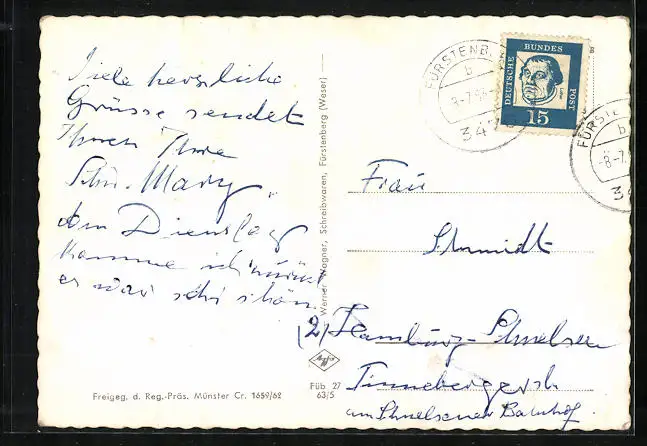 Viele herzliche
Grüsse sendet
Ihnen Ihre
Schw. Mary
Am Dienstag
komme ich zurück
es war sehr schön.
Werner Wagner, Schreibwaren, Fürstenberg (Weser)
FÜRSTENB
b
8-7.
34
DEUTSCHE BUNDES POST
15
FÜRSTE
b
8-7.
Frau
Schmidt
(2) Hamburg-Schnelsen
Pinnebergerstr.
am Schnelsener Bahnhof.
Agfa
Füb 27
63/5
Freigeg. d. Reg.-Präs. Münster Cr. 1659/62